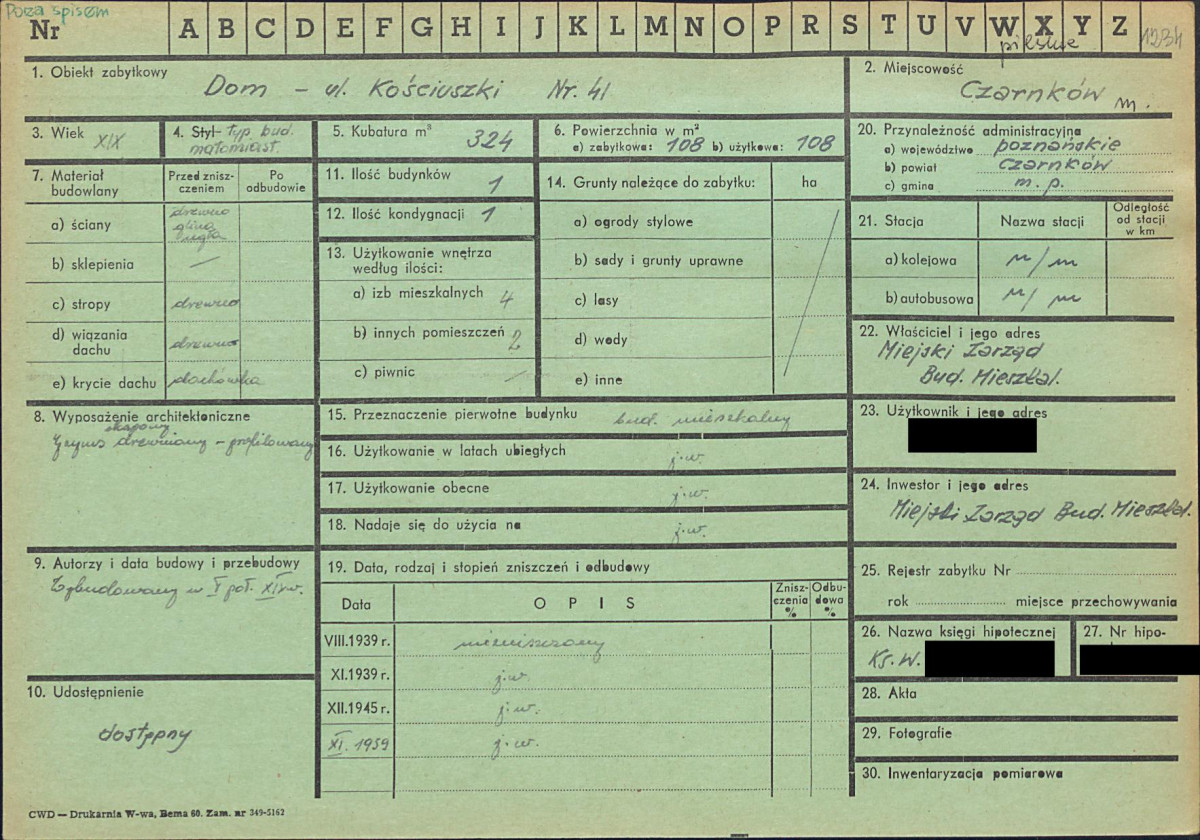 Poza spisem
Nr A B C D E F G H I J K L M N O P R S T U V W X Y Z 1234
pilskie
1. Obiekt zabytkowy
Dom - ul. Kościuszki Nr. 41
2. Miejscowość
Czarnków m.
3. Wiek XIX
4. Styl - typ. bud.
małomiast.
5. Kubatura m³
324
6. Powierzchnia w m²
a) zabytkowa: 108 b) użytkowa: 108
20. Przynależność administracyjna
a) województwo poznańskie
b) powiat Czarnków
c) gmina m. p.
7. Materiał budowlany
Przed zniszczeniem
Po odbudowie
a) ściany
drewno
glina
cegła
b) sklepienia —
c) stropy drewno
d) wiązania dachu drewno
e) krycie dachu dachówka
11. Ilość budynków 1
12. Ilość kondygnacji 1
13. Użytkowanie wnętrza
według ilości:
a) izb mieszkalnych 4
b) innych pomieszczeń 2
c) piwnic —
14. Grunty należące do zabytku: ha
a) ogrody stylowe
b) sady i grunty uprawne
c) lasy
d) wody
e) inne
21. Stacja Nazwa stacji
Odległość
od stacji
w km
a) kolejowa n/m
b) autobusowa n/m
22. Właściciel i jego adres
Miejski Zarząd
Bud. Mieszkal.
8. Wyposażenie architektoniczne
okapowy
Gzyms drewniany - profilowany
15. Przeznaczenie pierwotne budynku bud. mieszkalny
16. Użytkowanie w latach ubiegłych j.w.
17. Użytkowanie obecne j.w.
18. Nadaje się do użycia na j.w.
23. Użytkownik i jego adres
24. Inwestor i jego adres
Miejski Zarząd Bud. Mieszkal.
9. Autorzy i data budowy i przebudowy
Wybudowany w I poł. XIX w.
19. Data, rodzaj i stopień zniszczeń i odbudowy
Data OPIS
Zniszczenia %
Odbudowa %
VIII.1939 r. niezniszczony
XI.1939 r. j.w.
XII.1945 r. j.w.
XI. 1959 j.w.
25. Rejestr zabytku Nr
rok miejsce przechowywania
26. Nazwa księgi hipotecznej
Ks. W.
27. Nr hipo-
10. Udostępnienie
dostępny
28. Akta
29. Fotografie
30. Inwentaryzacja pomiarowa
CWD — Drukarnia W-wa, Bema 60. Zam. nr 349-5162